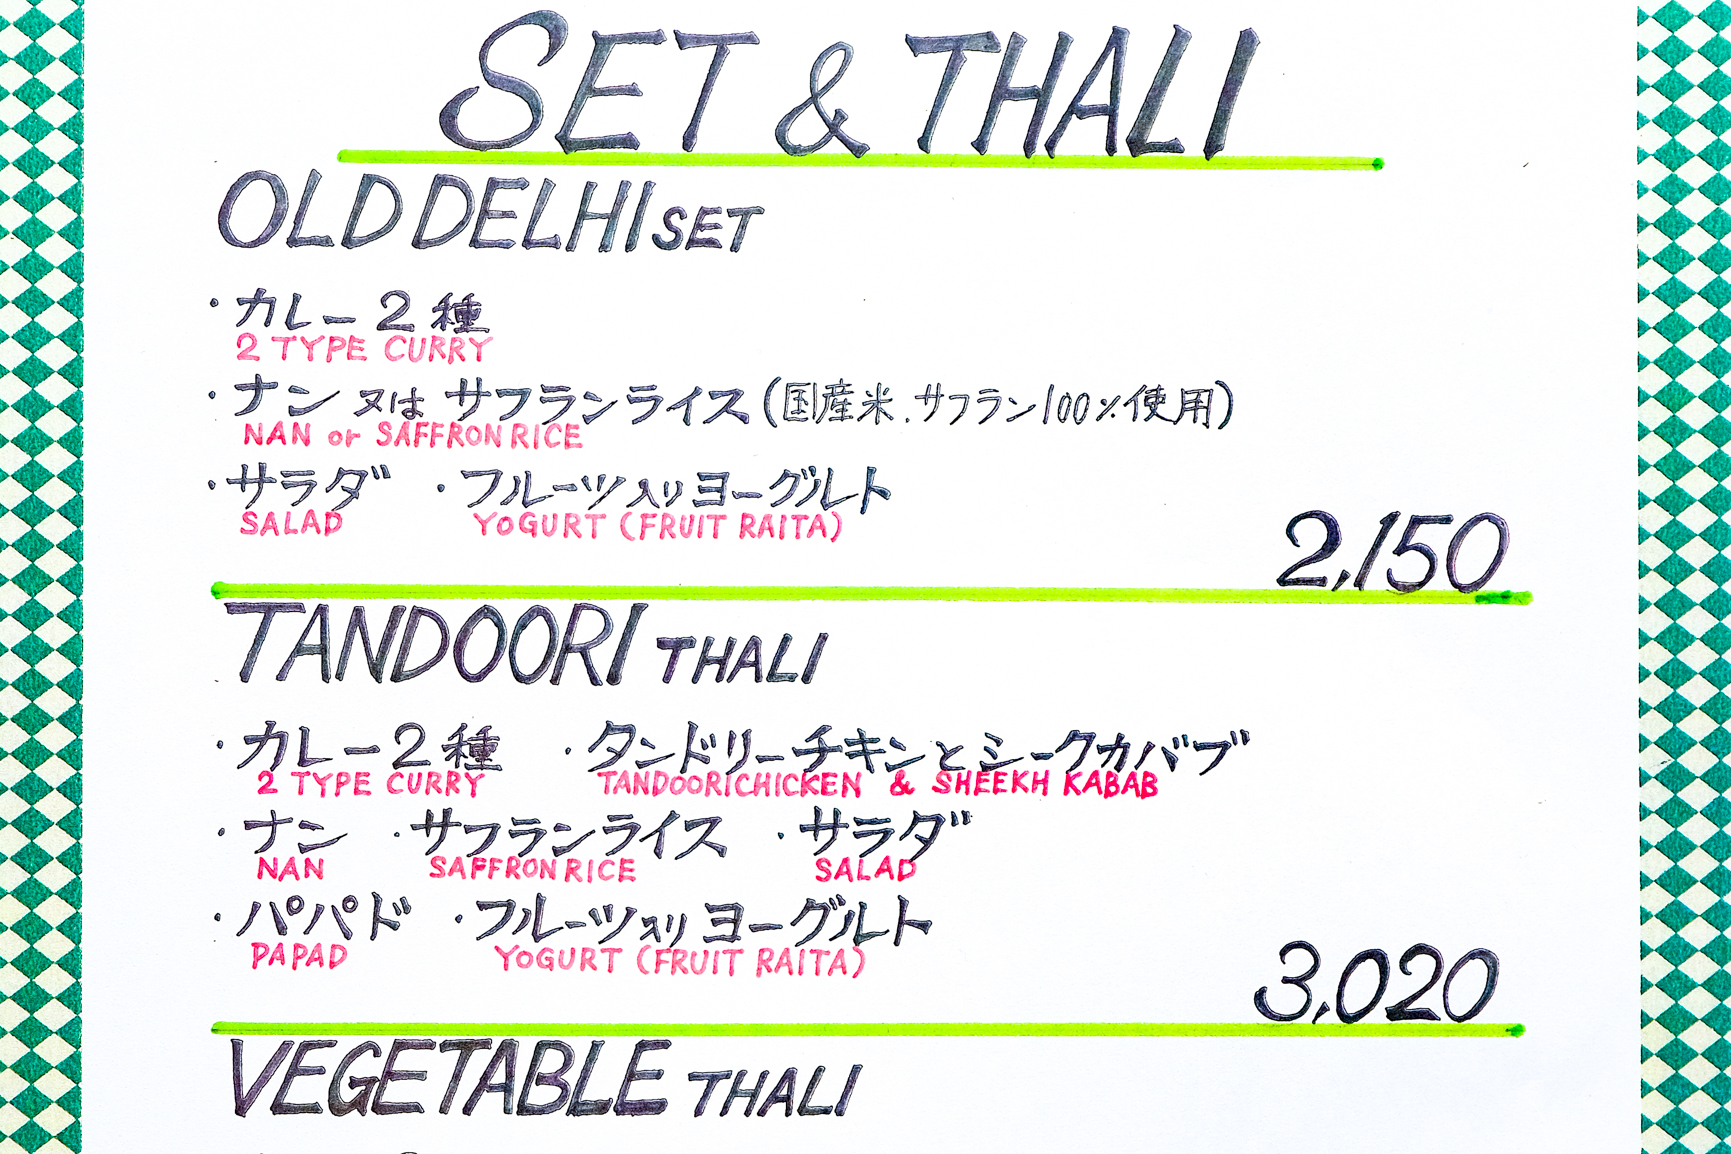 SET & THALI
OLD DELHI SET
・カレー2種
2 TYPE CURRY
・ナン 又は サフランライス(国産米.サフラン100%使用)
NAN or SAFFRON RICE
・サラダ ・フルーツ入りヨーグルト
SALAD YOGURT (FRUIT RAITA)
2,150
TANDOORI THALI
・カレー2種 ・タンドリーチキンとシークカバブ
2 TYPE CURRY TANDOORI CHICKEN & SHEEKH KABAB
・ナン ・サフランライス ・サラダ
NAN SAFFRON RICE SALAD
・パパド ・フルーツ入りヨーグルト
PAPAD YOGURT (FRUIT RAITA)
3,020
VEGETABLE THALI